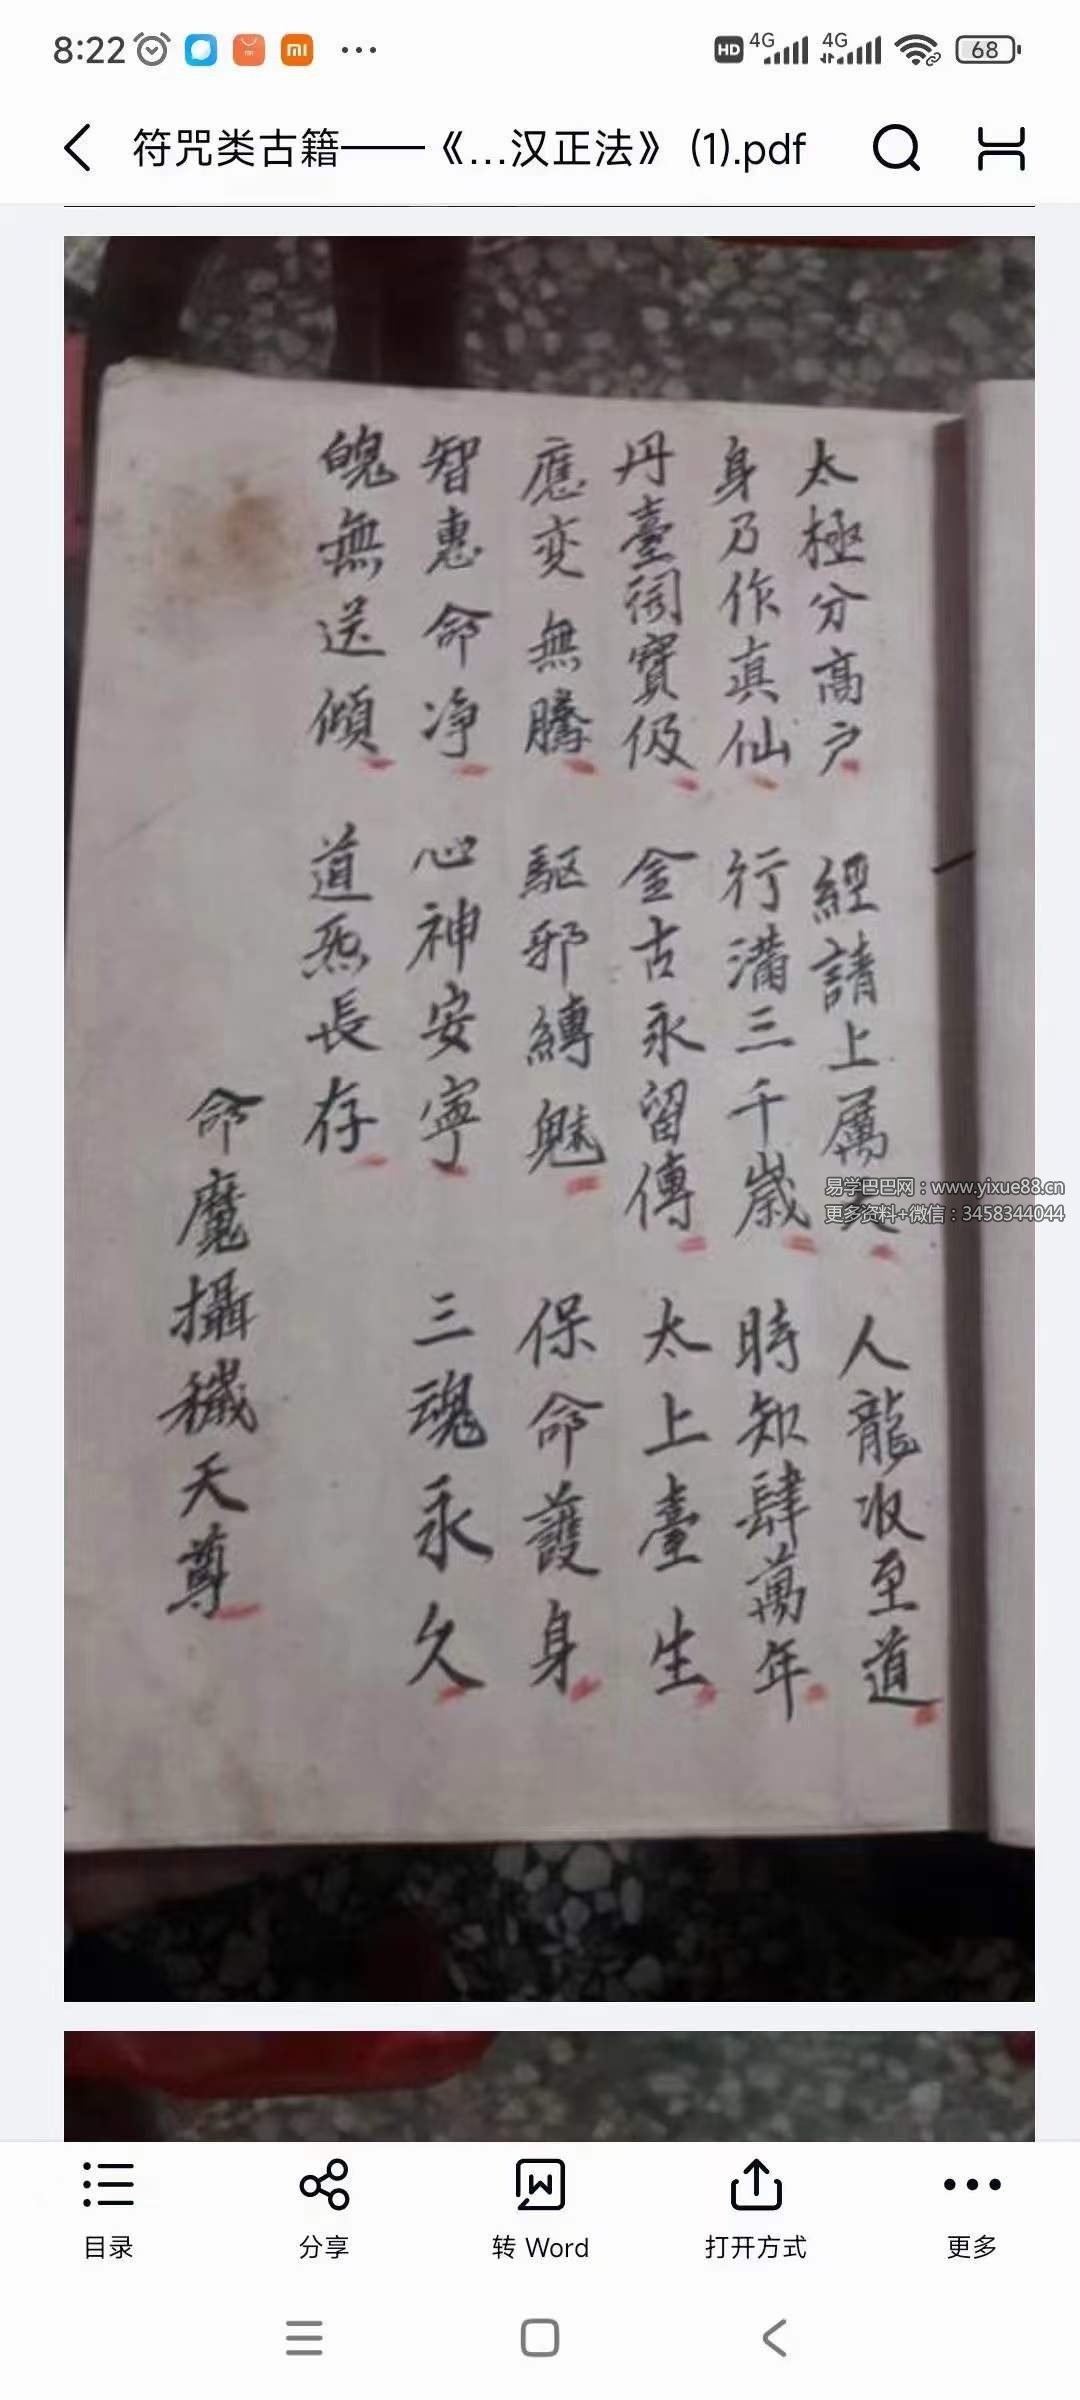 8:22
HD 4G 4G 68
符咒类古籍——《...汉正法》 (1).pdf
太極分高户 經請上属 人龍収至道
身乃作真仙 行满三千歲 時知肆萬年
丹臺祠寳伋 金古永留傳 太上臺生
應変無騰 駆邪縛魅 保命護身
智惠命净 心神安寧 三魂永久
魄無送傾 道炁長存
命魔攝穢天尊
易学巴巴网：www.yixue88.cn
更多资料+微信：3458344044
目录
分享
转 Word
打开方式
更多